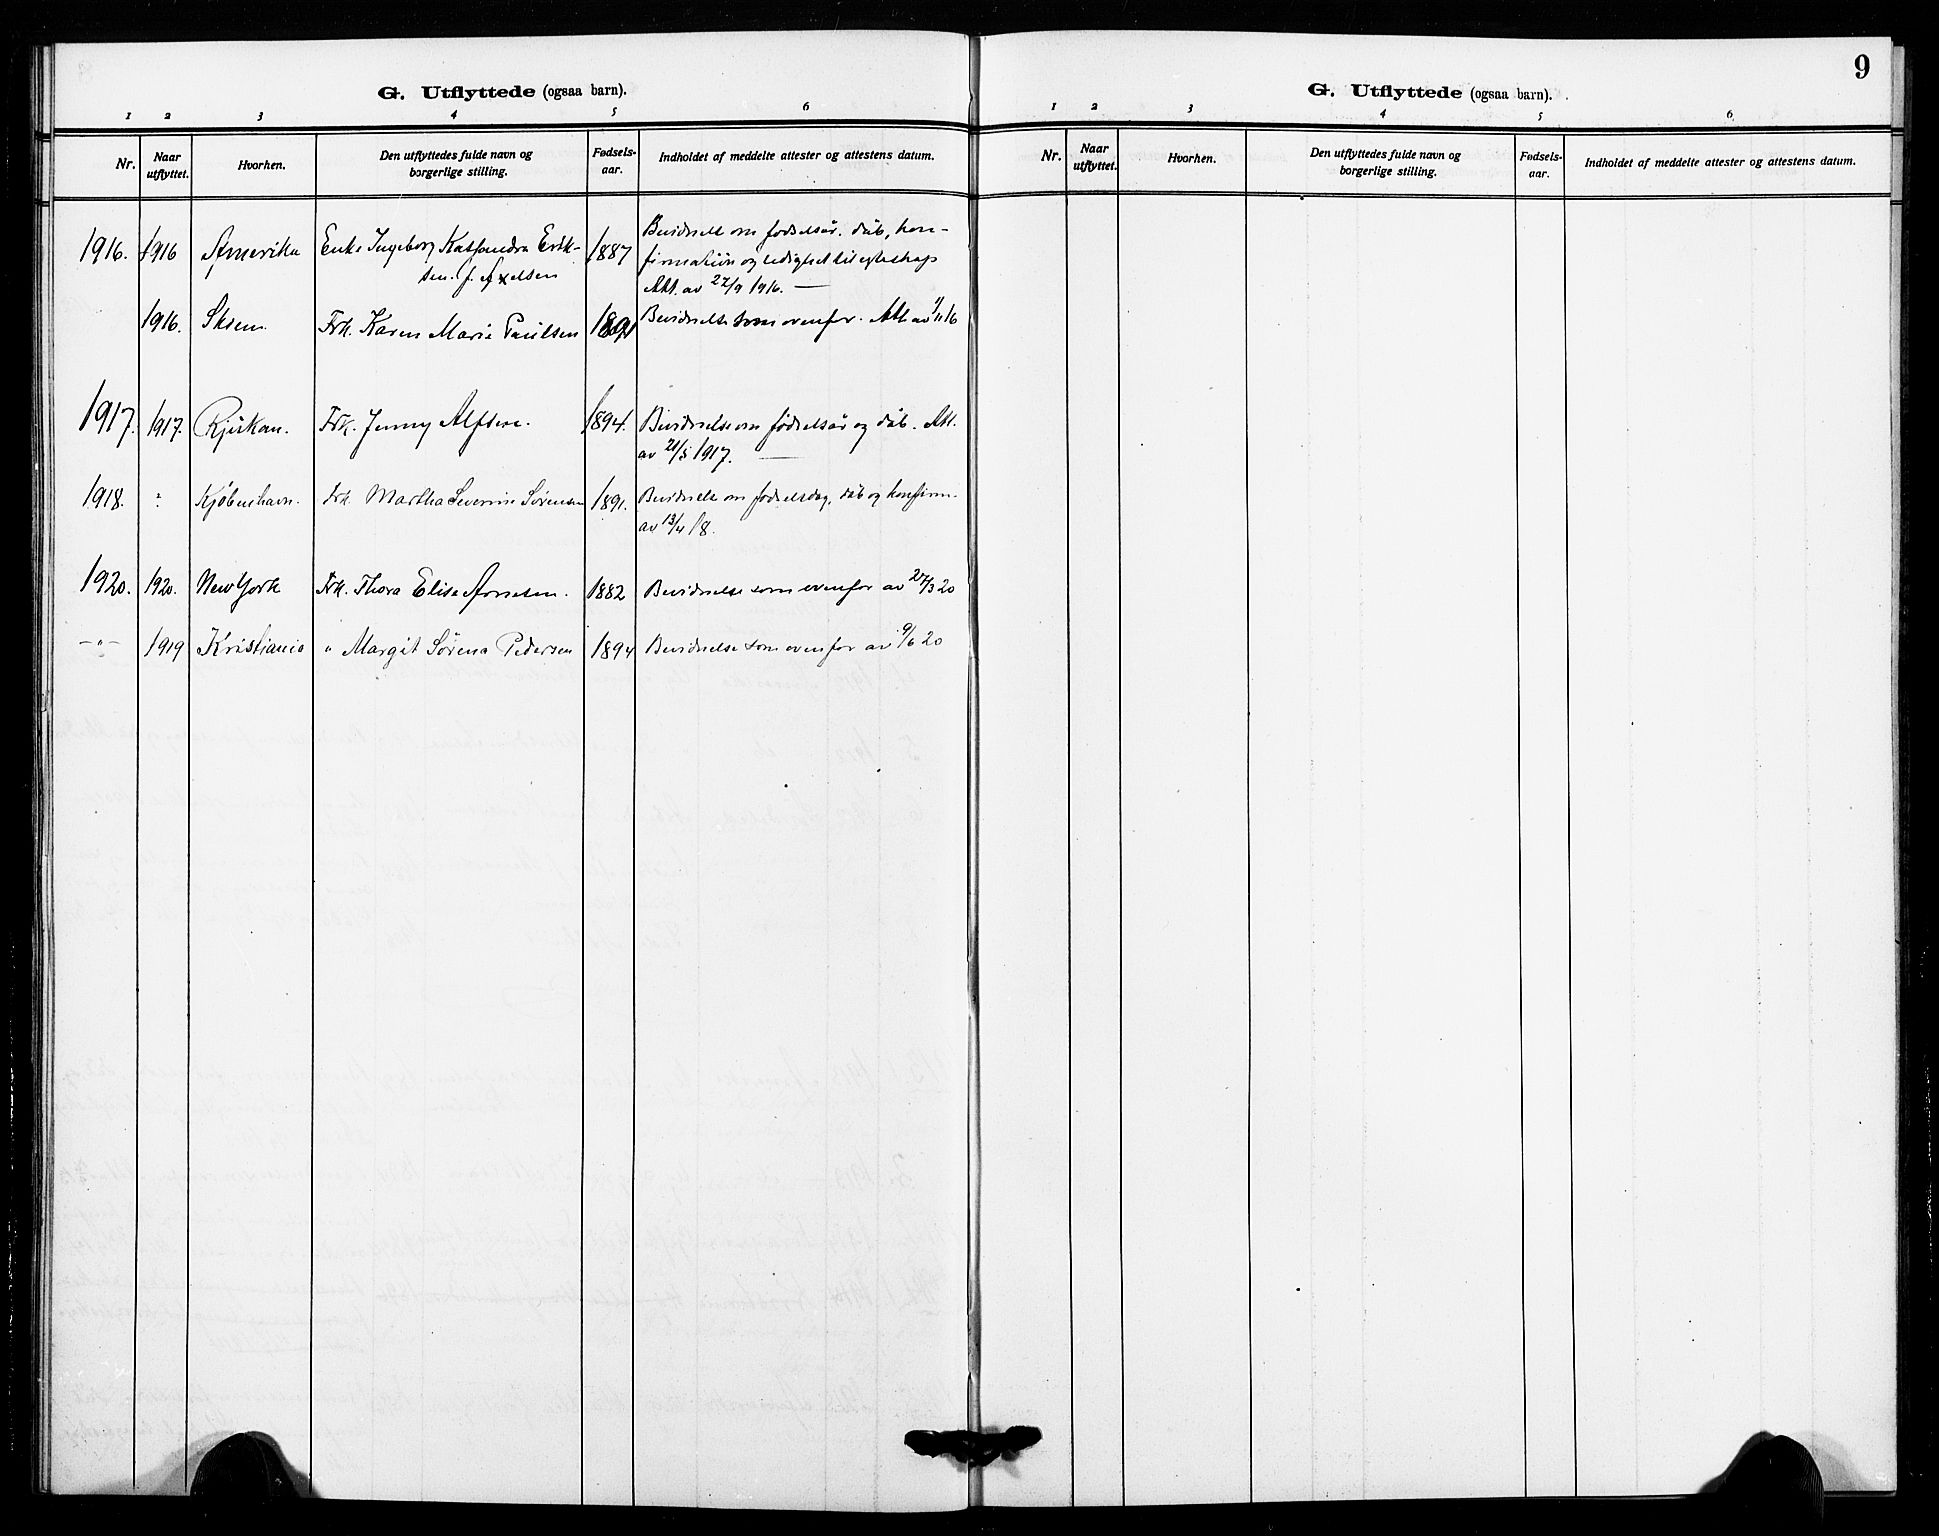 9
G. Utflyttede (ogsaa barn).
1 2 3 4 5 6
Nr. Naar utflyttet. Hvorhen. Den utflyttedes fulde navn og borgerlige stilling. Fødsels-aar. Indholdet af meddelte attester og attestens datum.
1916. 1916 Amerika Enke Ingeborg Kassandra Erik- 1887 Bevidnelse om fødselsår, dåb, kon-
sen f. Axelsen firmation og ledighet til egteskap
Att. av 27/9 1916. —
1916. Skien Frk. Karen Marie Paulsen 1891 Bevidnelse som ovenfor. Att av 1/11 16
1917. 1917. Rjukan. Frk. Jenny Alfsen. 1894. Bevidnelse om fødselsår og dåb. Att.
av 21/5 1917. —
1918. " Kjøbenhavn. Frk Martha Severine Sørensen 1891. Bevidnelse om fødselsdag, dåb og konfirm.
av 13/4 18.
1920. 1920. New York Frk. Thora Elise Arnesen. 1882 Bevidnelse som ovenfor av 27/3 20
—"— 1919 Kristiania " Margit Sørena Pedersen 1894 Bevidnelse som ovenfor av 9/6 20
G. Utflyttede (ogsaa barn).
1 2 3 4 5 6
Nr. Naar utflyttet. Hvorhen. Den utflyttedes fulde navn og borgerlige stilling. Fødsels-aar. Indholdet af meddelte attester og attestens datum.